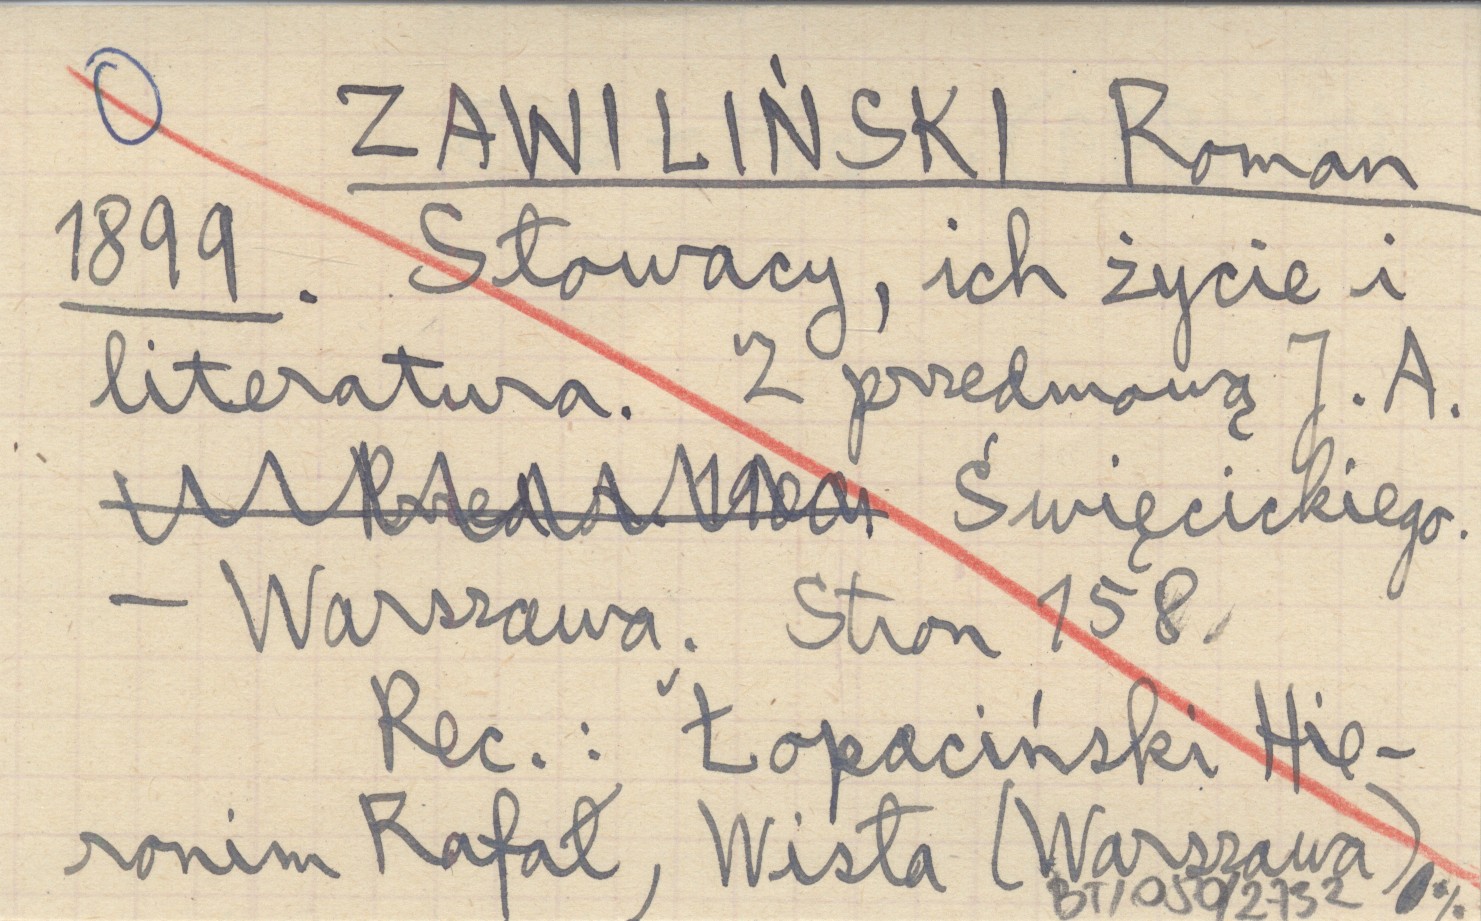 ZAWILIŃSKI Roman
1899. Słowacy, ich życie i
literatura. Z przedmową J. A.
Święcickiego.
— Warszawa. Stron 158.
Rec.: Łopaciński Hie-
ronim Rafał, Wisła (Warszawa),
BT/050/2732 %